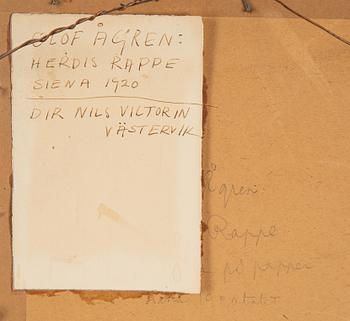 OLOF ÅGREN:
HERDIS RAPPE
SIENA 1920
DIR NILS VICTORIN
VÄSTERVIK
Ågren
Rappe
på papper